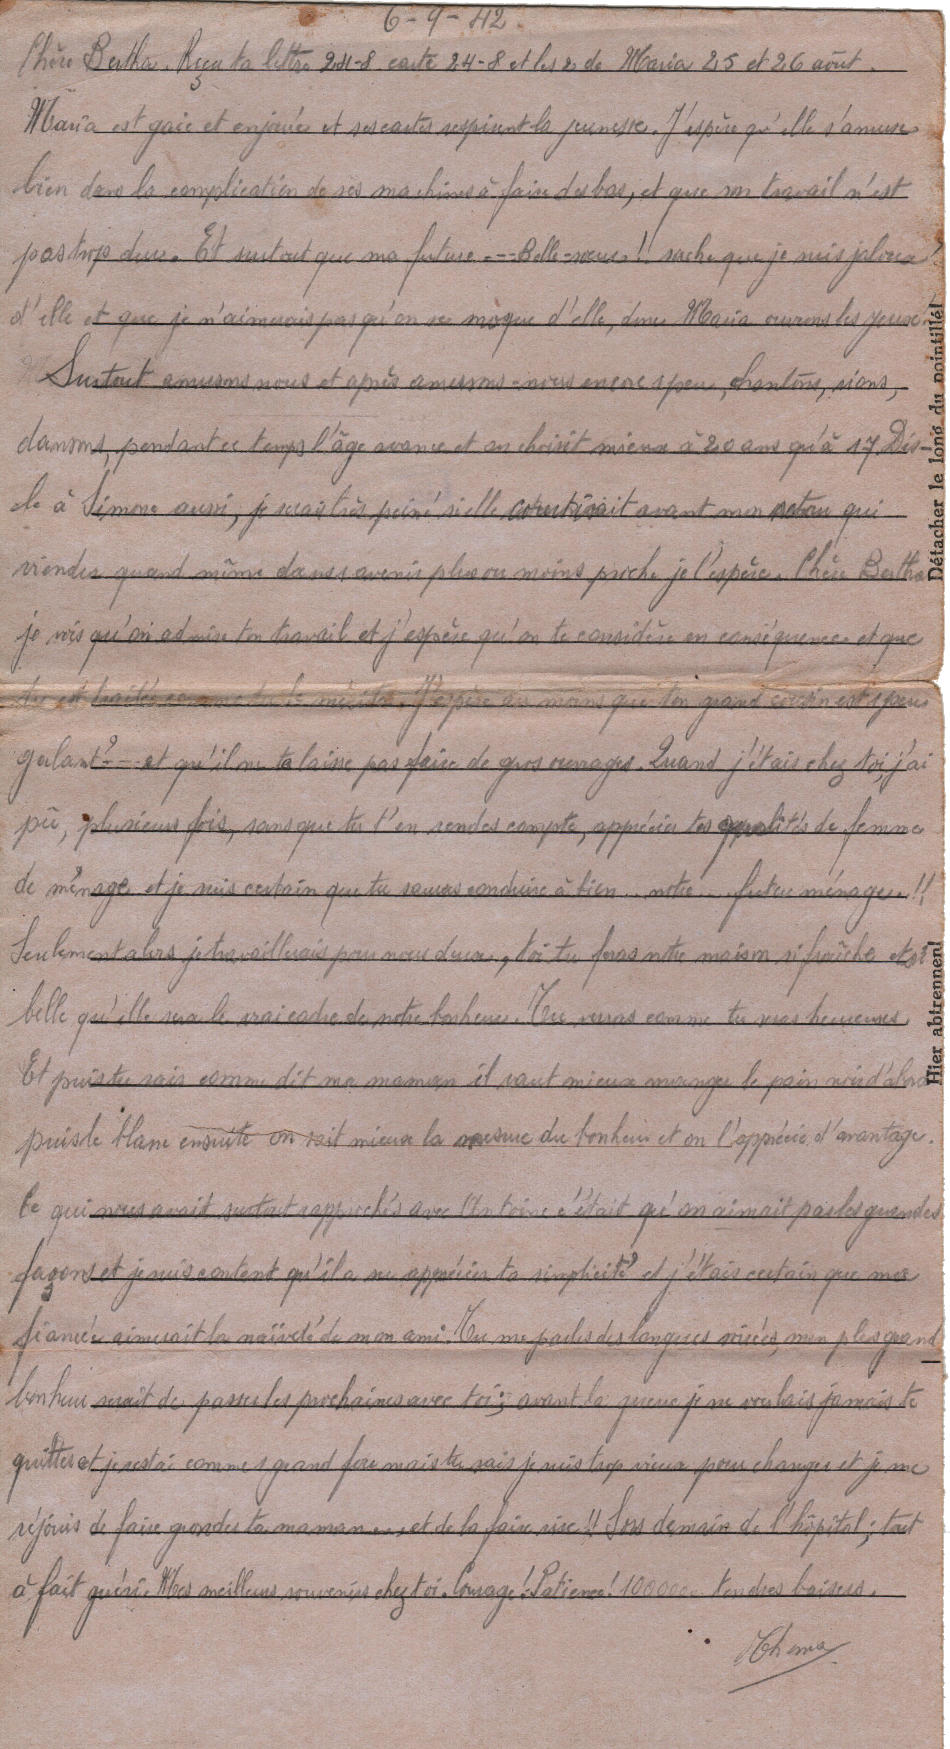 6-9-42.
Chère Bertha. Reçu ta lettre 24-8 carte 24-8 et les 2 de Maria 25 et 26 août.
Maria est gaie et enjouée et ses cartes respirent la jeunesse. J'espère qu'elle s'amuse
bien dans la complication de ses machines à faire des bas, et que son travail n'est
pas trop dur. Et surtout que ma future --- Belle-soeur !! sache que je suis jaloux
d'elle et que je n'aimerais pas qu'on se moque d'elle, donc Maria ouvrons les yeux.
Surtout amusons nous et après amusons-nous encore 1 peu, chantons, rions,
dansons, pendant ce temps l'âge avance et on choisit mieux à 20 ans qu'à 17. Dis-
le à Simone aussi, je serais très peiné si elle avant mon retour qui
viendra quand même dans 1 avenir plus ou moins proche je l'espère. Chère Bertha
je vois qu'on admire ton travail et j'espère qu'on te considère en conséquence et que
tu est traitée comme tu le mérites. J'espère au moins que ton grand cousin est 1 peu
galant? --- et qu'il ne te laisse pas faire de gros ouvrages. Quand j'étais chez toi, j'ai
pû, plusieurs fois, sans que tu t'en rendes compte, apprécier tes qualités de femme
de ménage et je suis certain que tu sauras conduire à bien ... notre ... futur ménage. !!
Seulement alors je travaillerais pour nous deux, toi tu feras notre maison si fraîche et si
belle qu'elle sera le vrai cadre de notre bonheur. Tu verras comme tu seras heureuse.
Et puis tu sais comme dit ma maman il vaut mieux manger le pain noir d'abord
puis le blanc ensuite on sait mieux la mesure du bonheur et on l'apprécie d'avantage.
Ce qui nous avait surtout rapprochés avec Antoine c'était qu'on aimait pas les grandes
façons et je suis content qu'il a su apprécier ta simplicité et j'étais certain que ma
fiancée aimerait la naïveté de mon ami. Tu me parles des longues soirées, mon plus grand
bonheur serait de passer les prochaines avec toi; avant la guerre je ne voulais jamais te
quitter et je restai comme 1 grand fou mais tu sais je suis trop vieux pour changer et je me
réjouis de faire gronder ta maman ... et de la faire rire !! Sors demain de l'hôpital; tout
à fait guéri. Mes meilleurs souvenirs chez toi. Courage! Patience! 1000000 tendres baisers.
Détacher le long du pointillé!
Hier abtrennen!